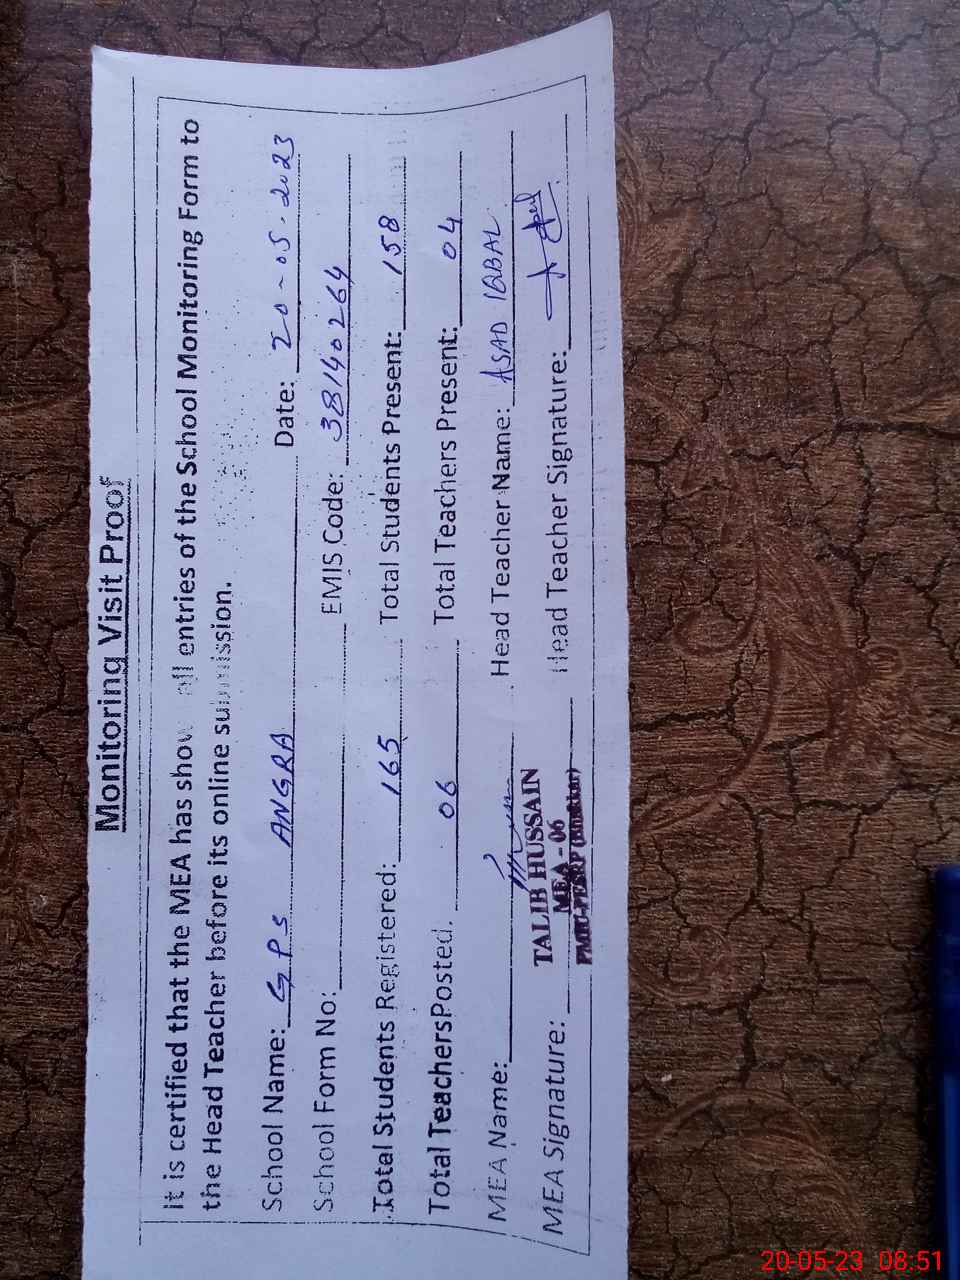 Monitoring Visit Proof
It is certified that the MEA has show all entries of the School Monitoring Form to
the Head Teacher before its online submission.
School Name: G P S ANGRA Date: 20-05-2023
School Form No: EMIS Code: 38140264
Total Students Registered: 165 Total Students Present: 158
Total Teachers Posted. 06 Total Teachers Present: 04
MEA Name: Head Teacher Name: ASAD IQBAL
TALIB HUSSAIN
MEA - 06
PMIU-PESRP (Bhakkar)
MEA Signature: Head Teacher Signature:
20-05-23 08:51